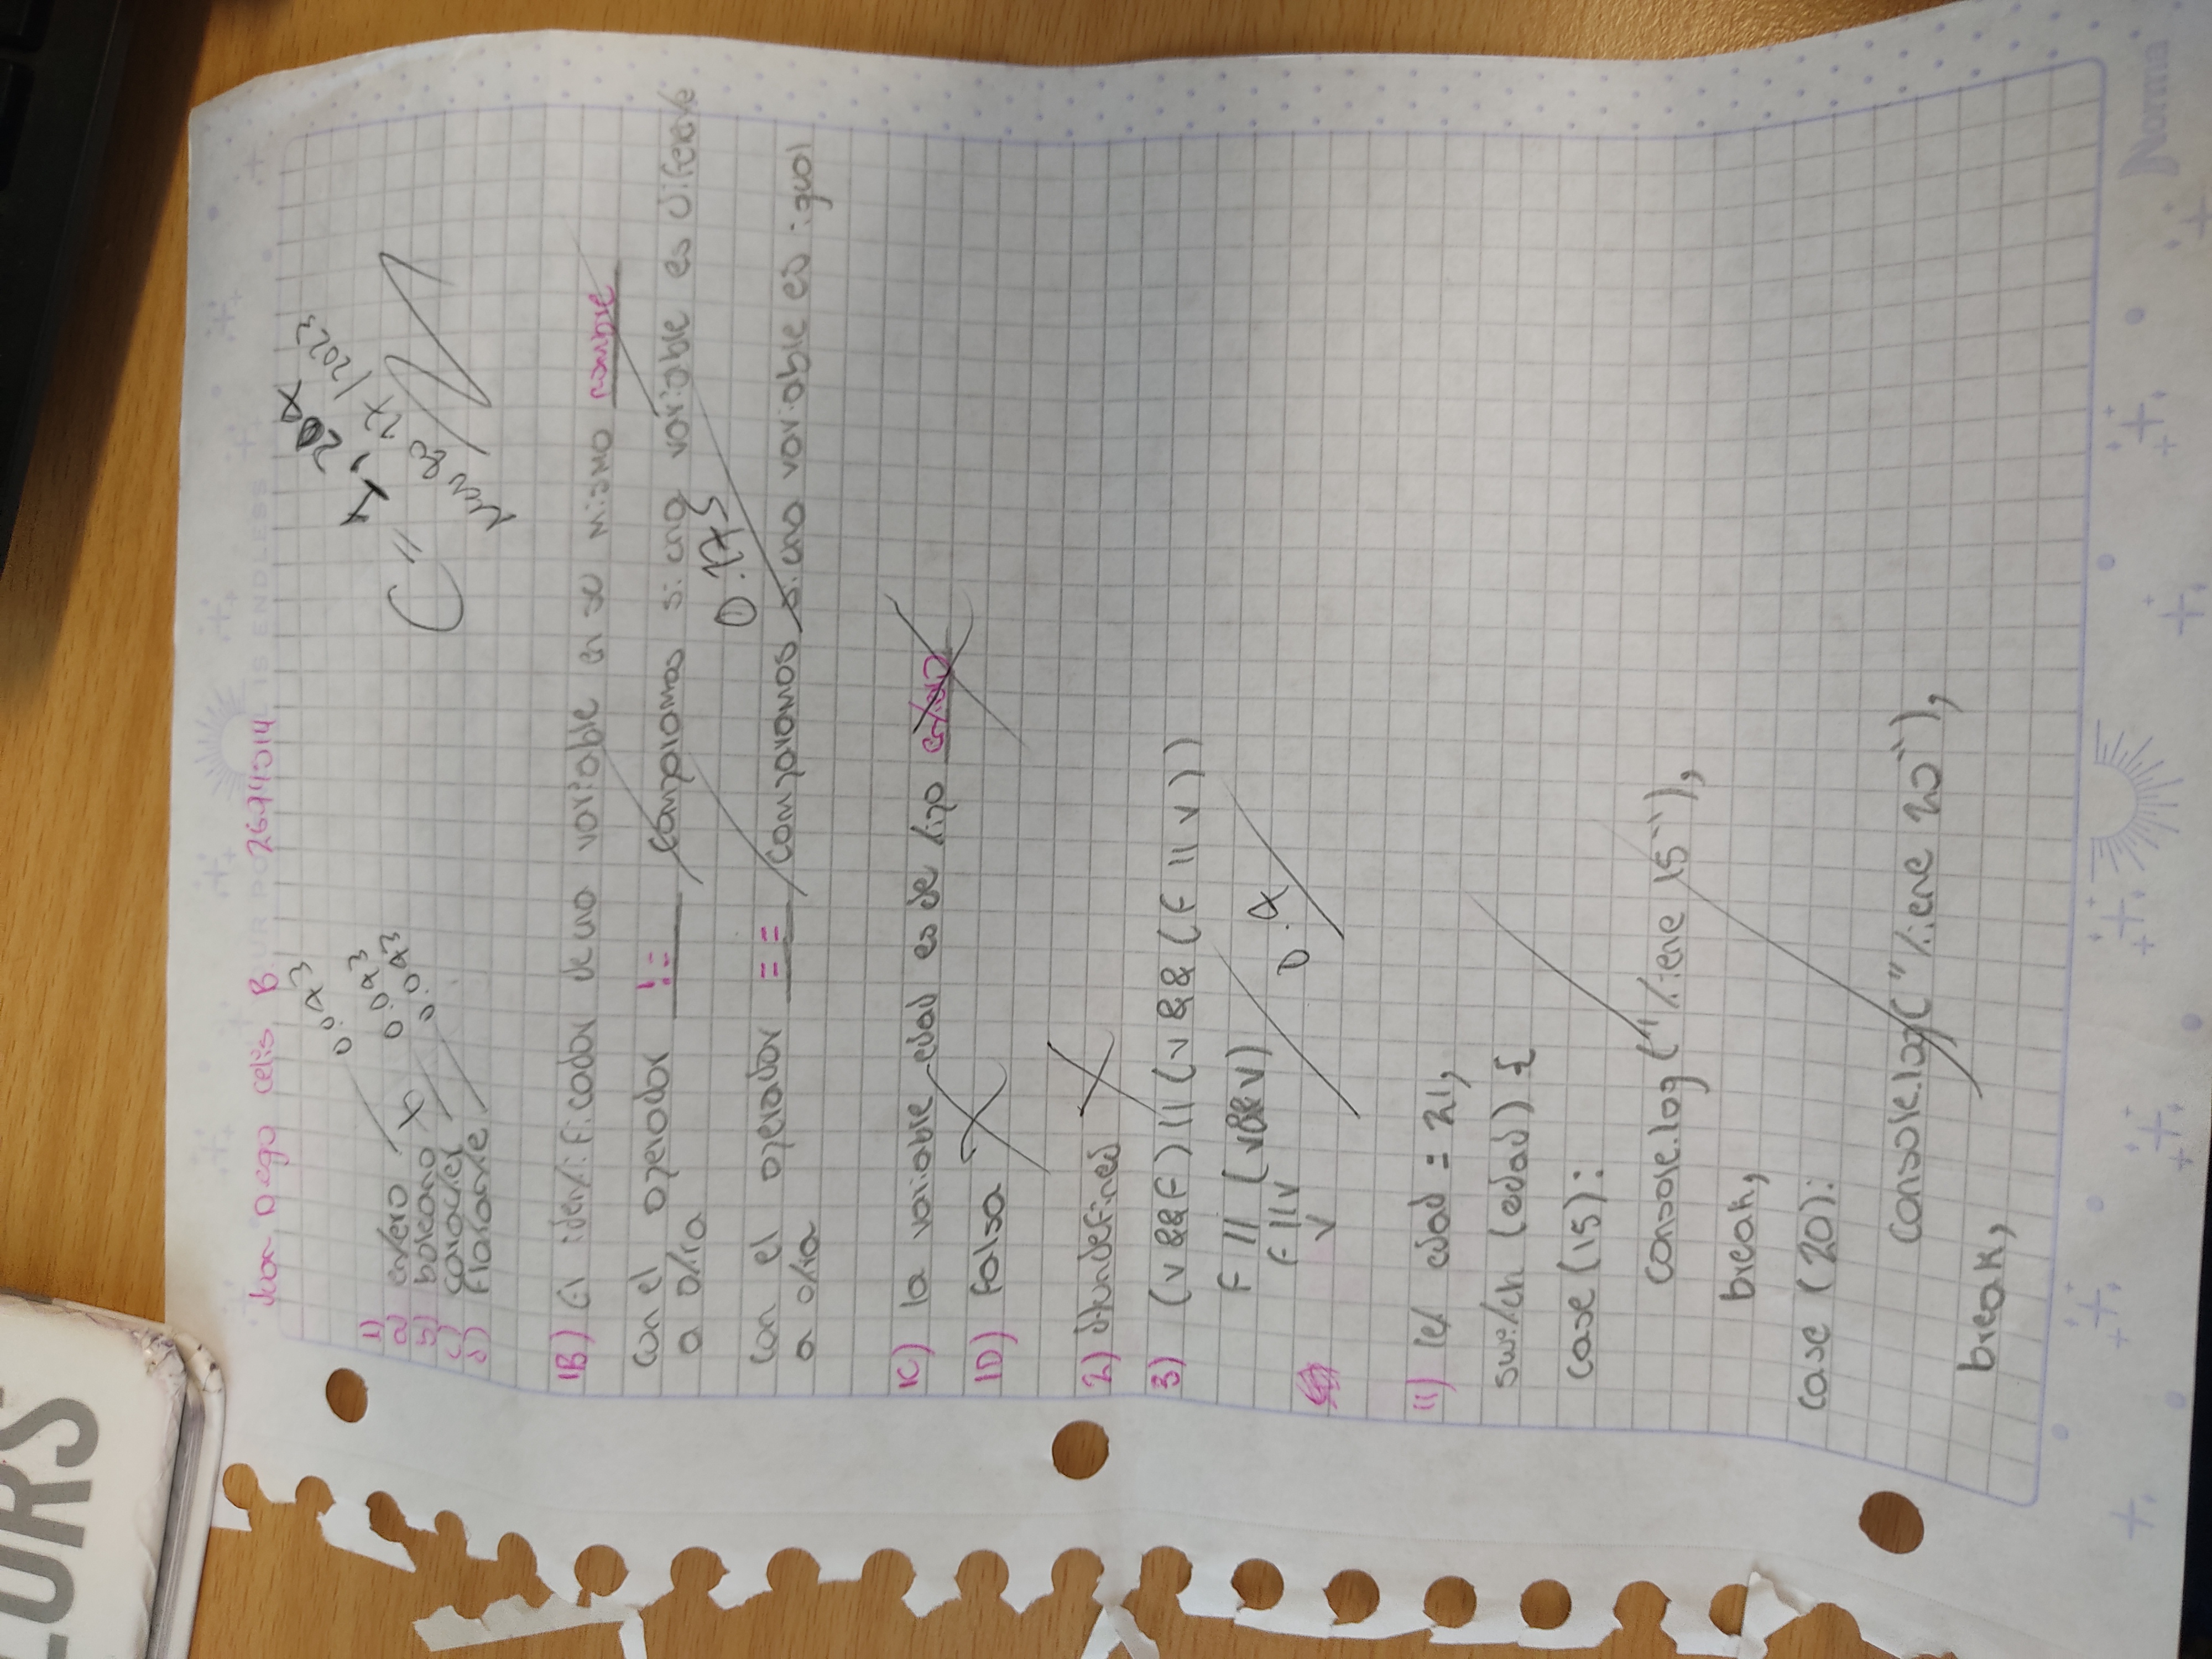 LORS
Juan Diego Celis B 2694014
C = 1,204
Nov 27/2023
1)
a) entero 0.043
b) boleano
c) caracter 0.043
d) flotante 0.043
1B) El identificador de una variable en su mismo nombre
con el operador != comparamos si una variable es diferente
a otra
0.175
con el operador == comparamos si una variable es igual
a otra
1C) la variable edad es de tipo entero
1D) falsa
2) d) undefined
3) (v && F) || (v && (F || v))
F || (v && v)
F || v
0.4
v
11) let edad = 21;
switch (edad) {
case (15):
console.log("tiene 15");
break;
case (20):
console.log("tiene 20");
break;
Norma